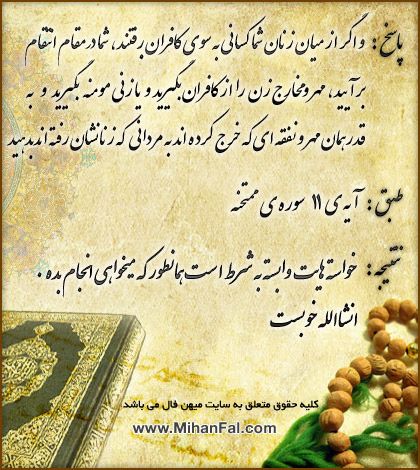 پاسخ: و اگر از میان زنان شما کسانی به سوی کافران رفتند، شما در مقام انتقام
برآیید، مهر و مخارج زن را از کافران بگیرید و یا زنی مومنه بگیرید و به
قدر همان مهر و نفقه ای که خرج کرده اند به مردانی که زنانشان رفته اند بدهید
طبق: آیه ی ۱۱ سوره ی ممتحنه
نتیجه: خواسته هایت وابسته به شرط است همانطور که میخواهی انجام بده.
انشاالله خوبست
کلیه حقوق متعلق به سایت میهن فال می باشد
www.MihanFal.com